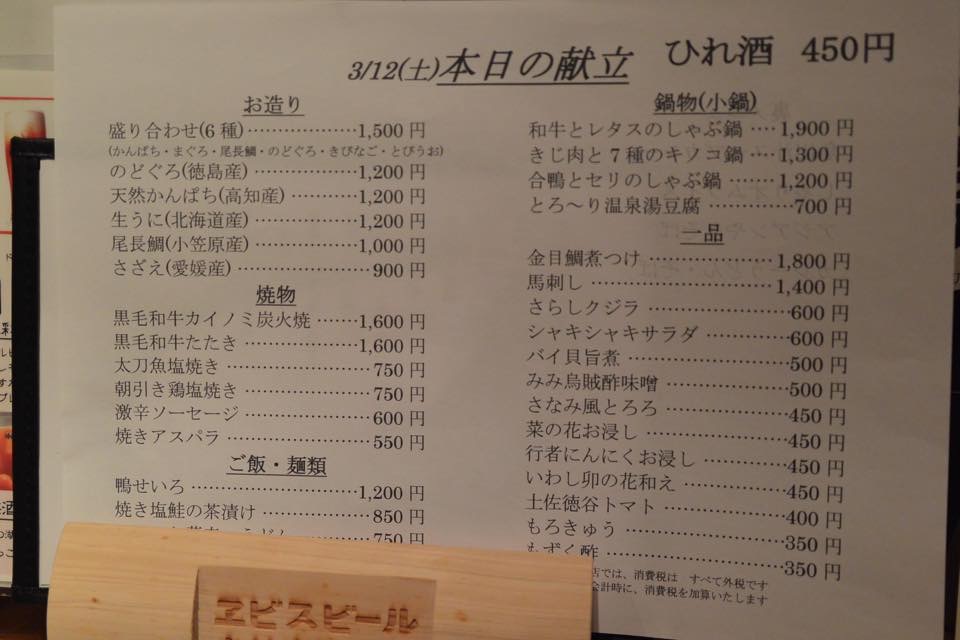 3/12(土)本日の献立 ひれ酒 450円
お造り
盛り合わせ(6種)………………1,500円
(かんぱち・まぐろ・尾長鯛・のどぐろ・きびなご・とびうお)
のどぐろ(徳島産)………………1,200円
天然かんぱち(高知産)…………1,200円
生うに(北海道産)………………1,200円
尾長鯛(小笠原産)………………1,000円
さざえ(愛媛産)…………………900円
焼物
黒毛和牛カイノミ炭火焼……1,600円
黒毛和牛たたき………………1,600円
太刀魚塩焼き…………………750円
朝引き鶏塩焼き………………750円
激辛ソーセージ………………600円
焼きアスパラ…………………550円
ご飯・麺類
鴨せいろ………………………1,200円
焼き塩鮭の茶漬け……………850円
750円
鍋物(小鍋)
和牛とレタスのしゃぶ鍋‥‥1,900円
きじ肉と7種のキノコ鍋‥‥1,300円
合鴨とセリのしゃぶ鍋………1,200円
とろ～り温泉湯豆腐…………700円
一品
金目鯛煮つけ…………………1,800円
馬刺し…………………………1,400円
さらしクジラ…………………600円
シャキシャキサラダ…………600円
バイ貝旨煮……………………500円
みみ烏賊酢味噌………………500円
さなみ風とろろ………………450円
菜の花お浸し…………………450円
行者にんにくお浸し…………450円
いわし卯の花和え……………450円
土佐徳谷トマト………………400円
もろきゅう……………………350円
もずく酢………………………350円
店では、消費税は すべて外税です
会計時に、消費税を加算いたします
ヱビスビール